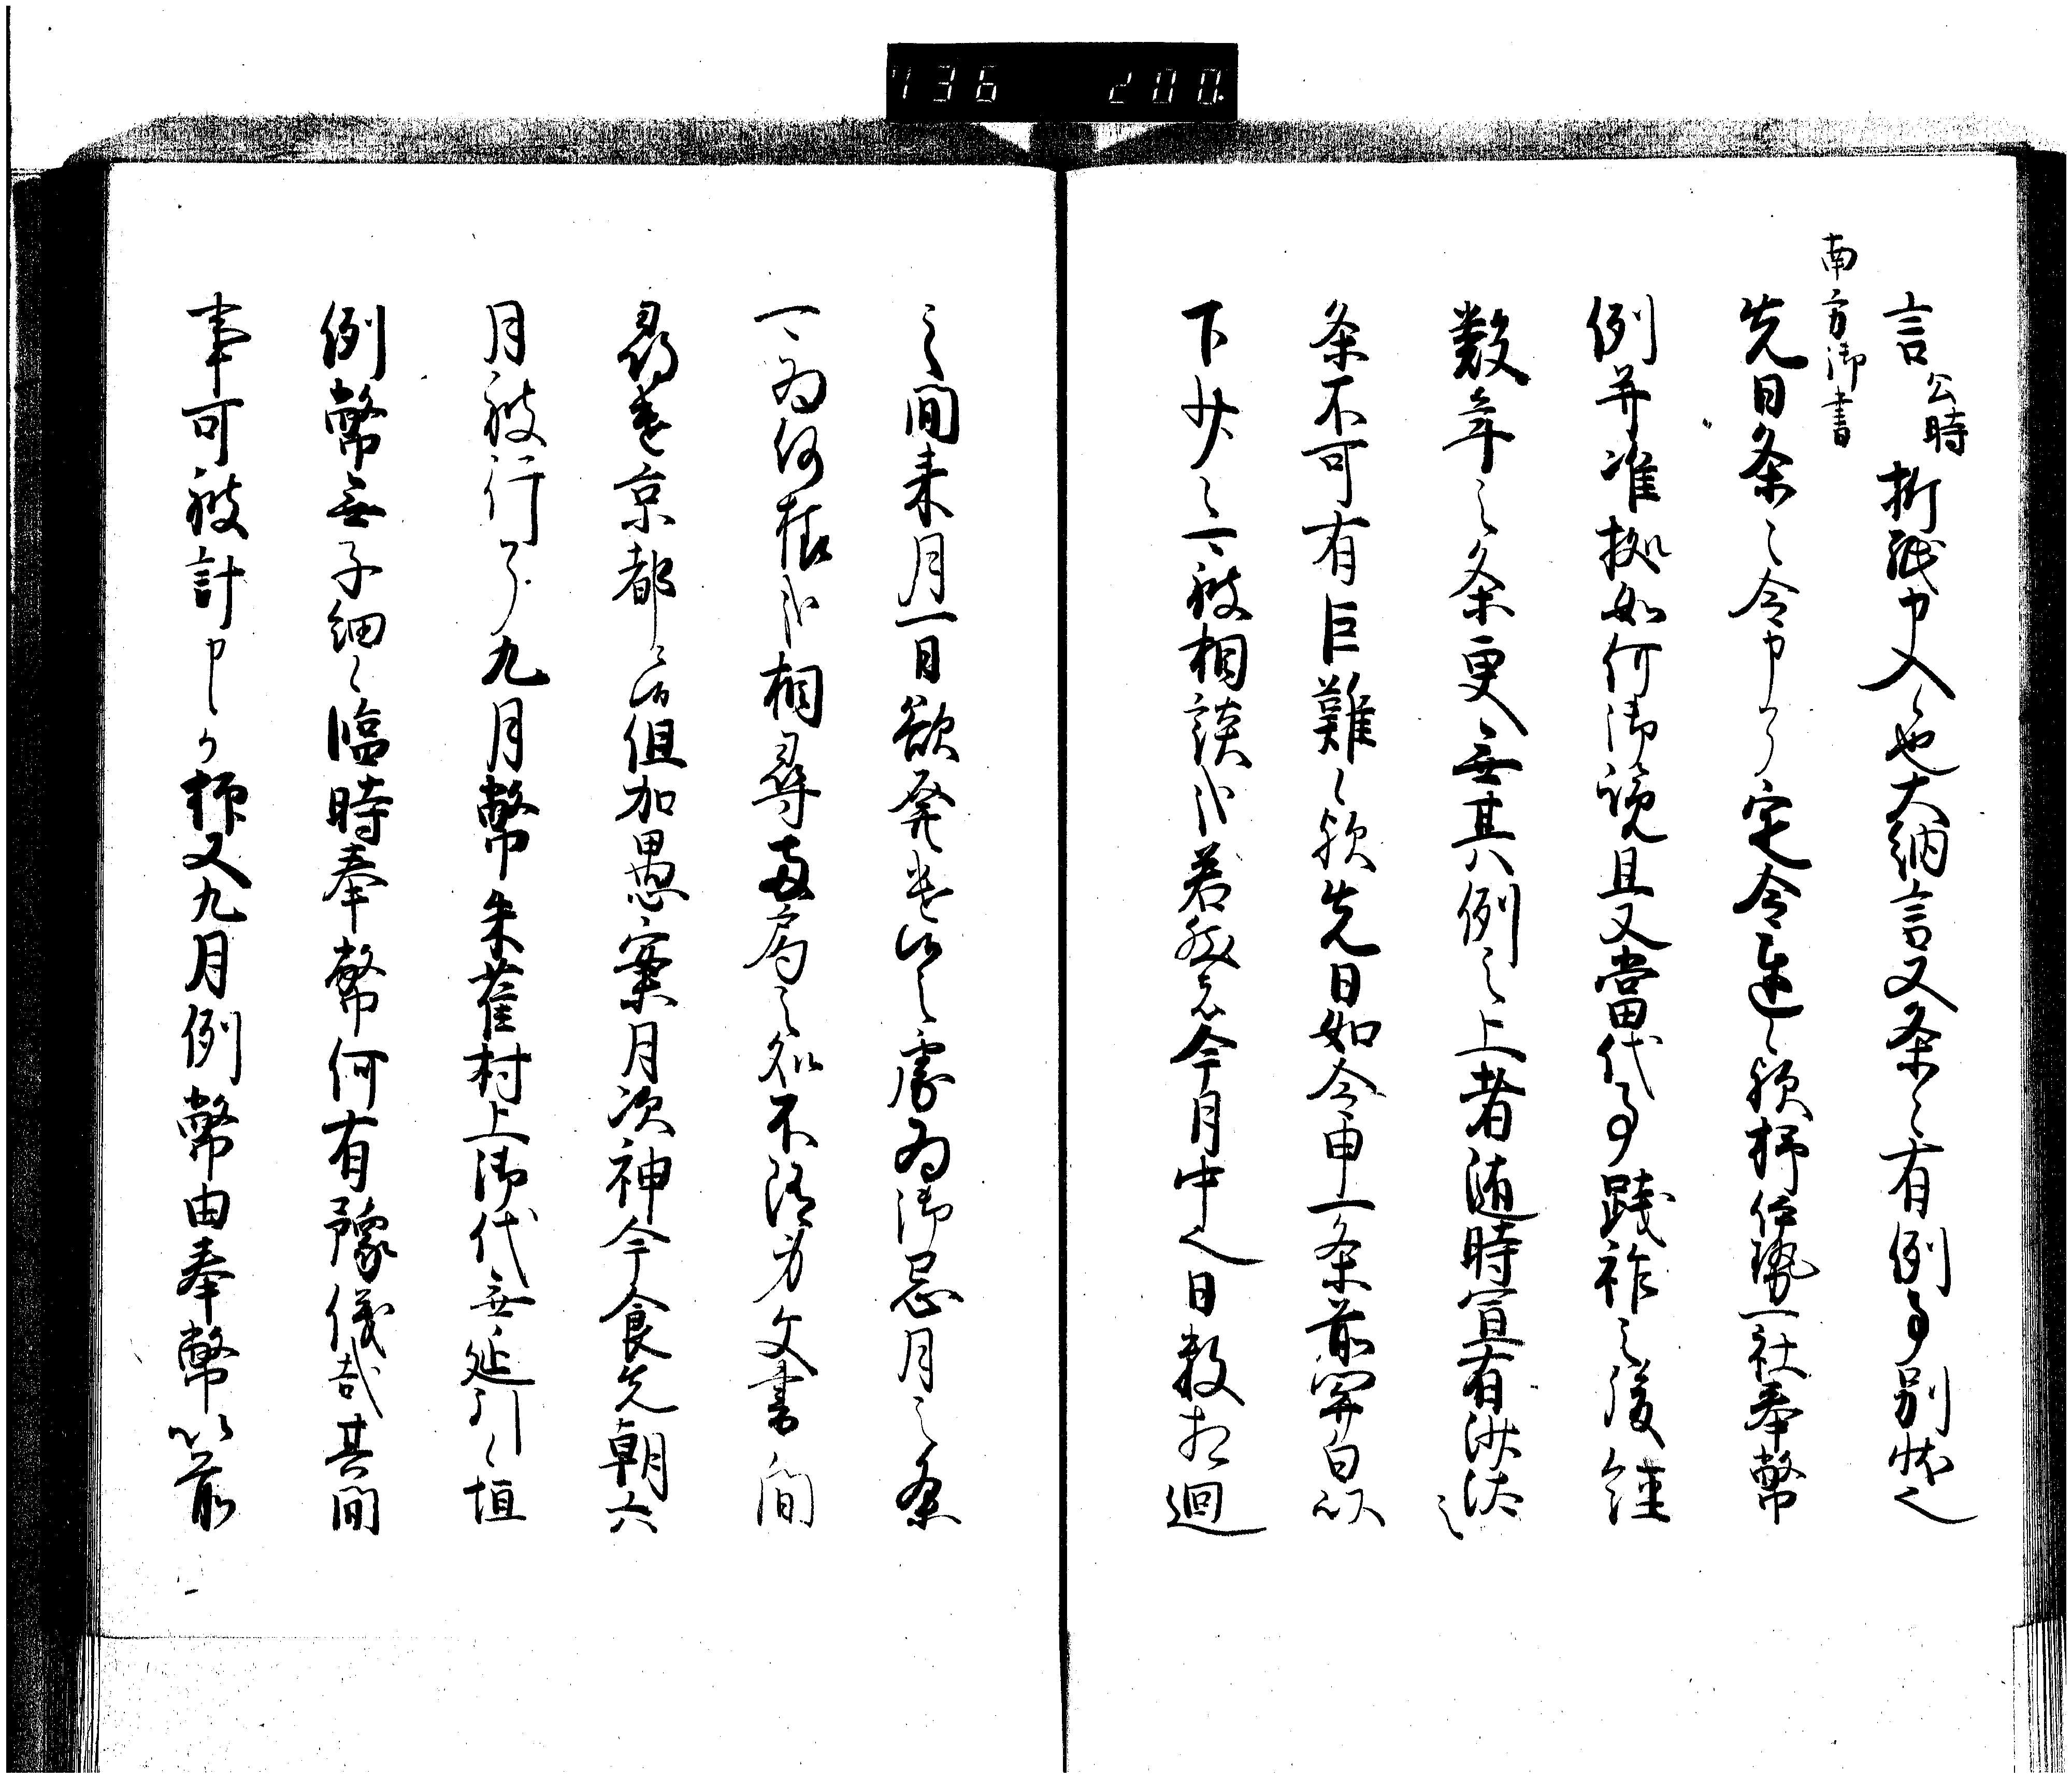 736 200.
言公時折紙申入也大納言又条々有例事別状也
南方御書
先日条々令申了定令達歟抑伊勢一社奉幣
例并准拠如何御覧且又當代事践祚之後経
数年之条更無其例之上者随時宜有沙汰之
条不可有巨難歟先日如令申一条前関白以
下少々被相談候若然者今月中日数相廻
之間来月一日欲発遣候之處為御忌月之条
為何様候相尋両局之処不帯文書間
尋遣京都候但加愚案月次神今食先朝六
月被行了九月幣朱雀村上御代無延引恒
例幣無子細臨時奉幣何有豫儀哉其間
事可被計申抑又九月例幣由奉幣以前